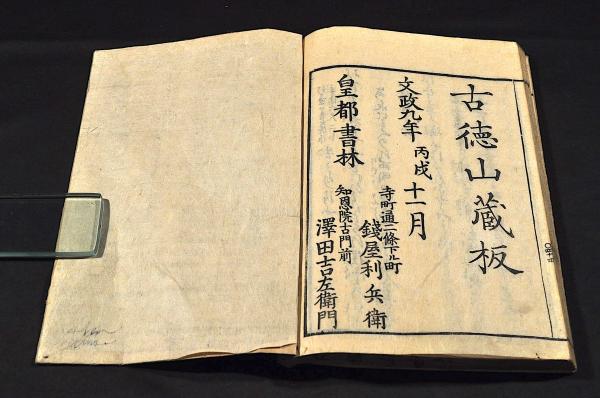 古徳山蔵板
文政九年丙戌十一月
皇都書林
寺町通二條下ル町
錢屋利兵衛
知恩院古門前
澤田吉左衛門